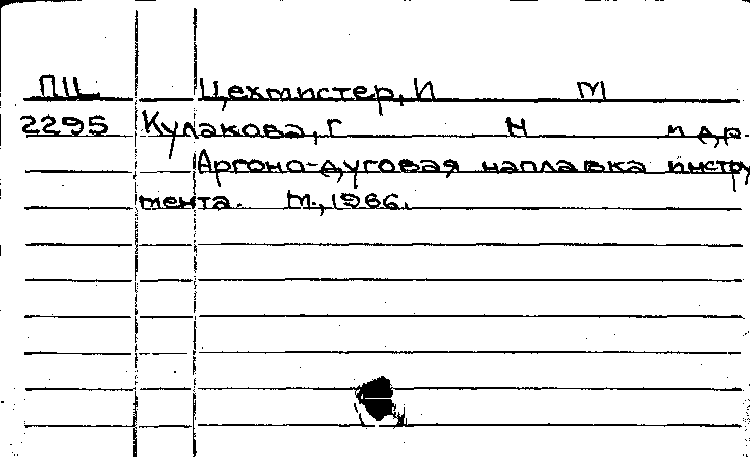 ПЦ Цехмистер, И М
2295 Кулакова, Г Н и др.
Аргоно-дуговая наплавка инстру
мента. М., 1966.